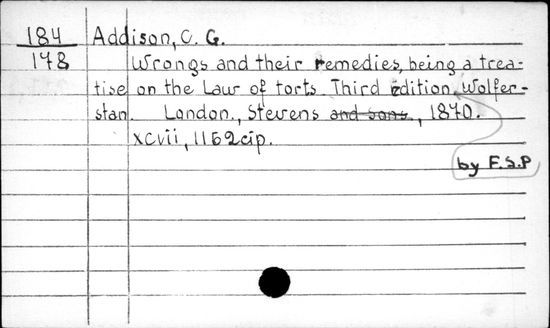 184 Addison, C. G.
178 Wrongs and their remedies, being a trea-
tise on the Law of torts. Third edition. Wolfer-
stan. London., Stevens and sons., 1870.
xcvii, 1152cip.
by F.S.P